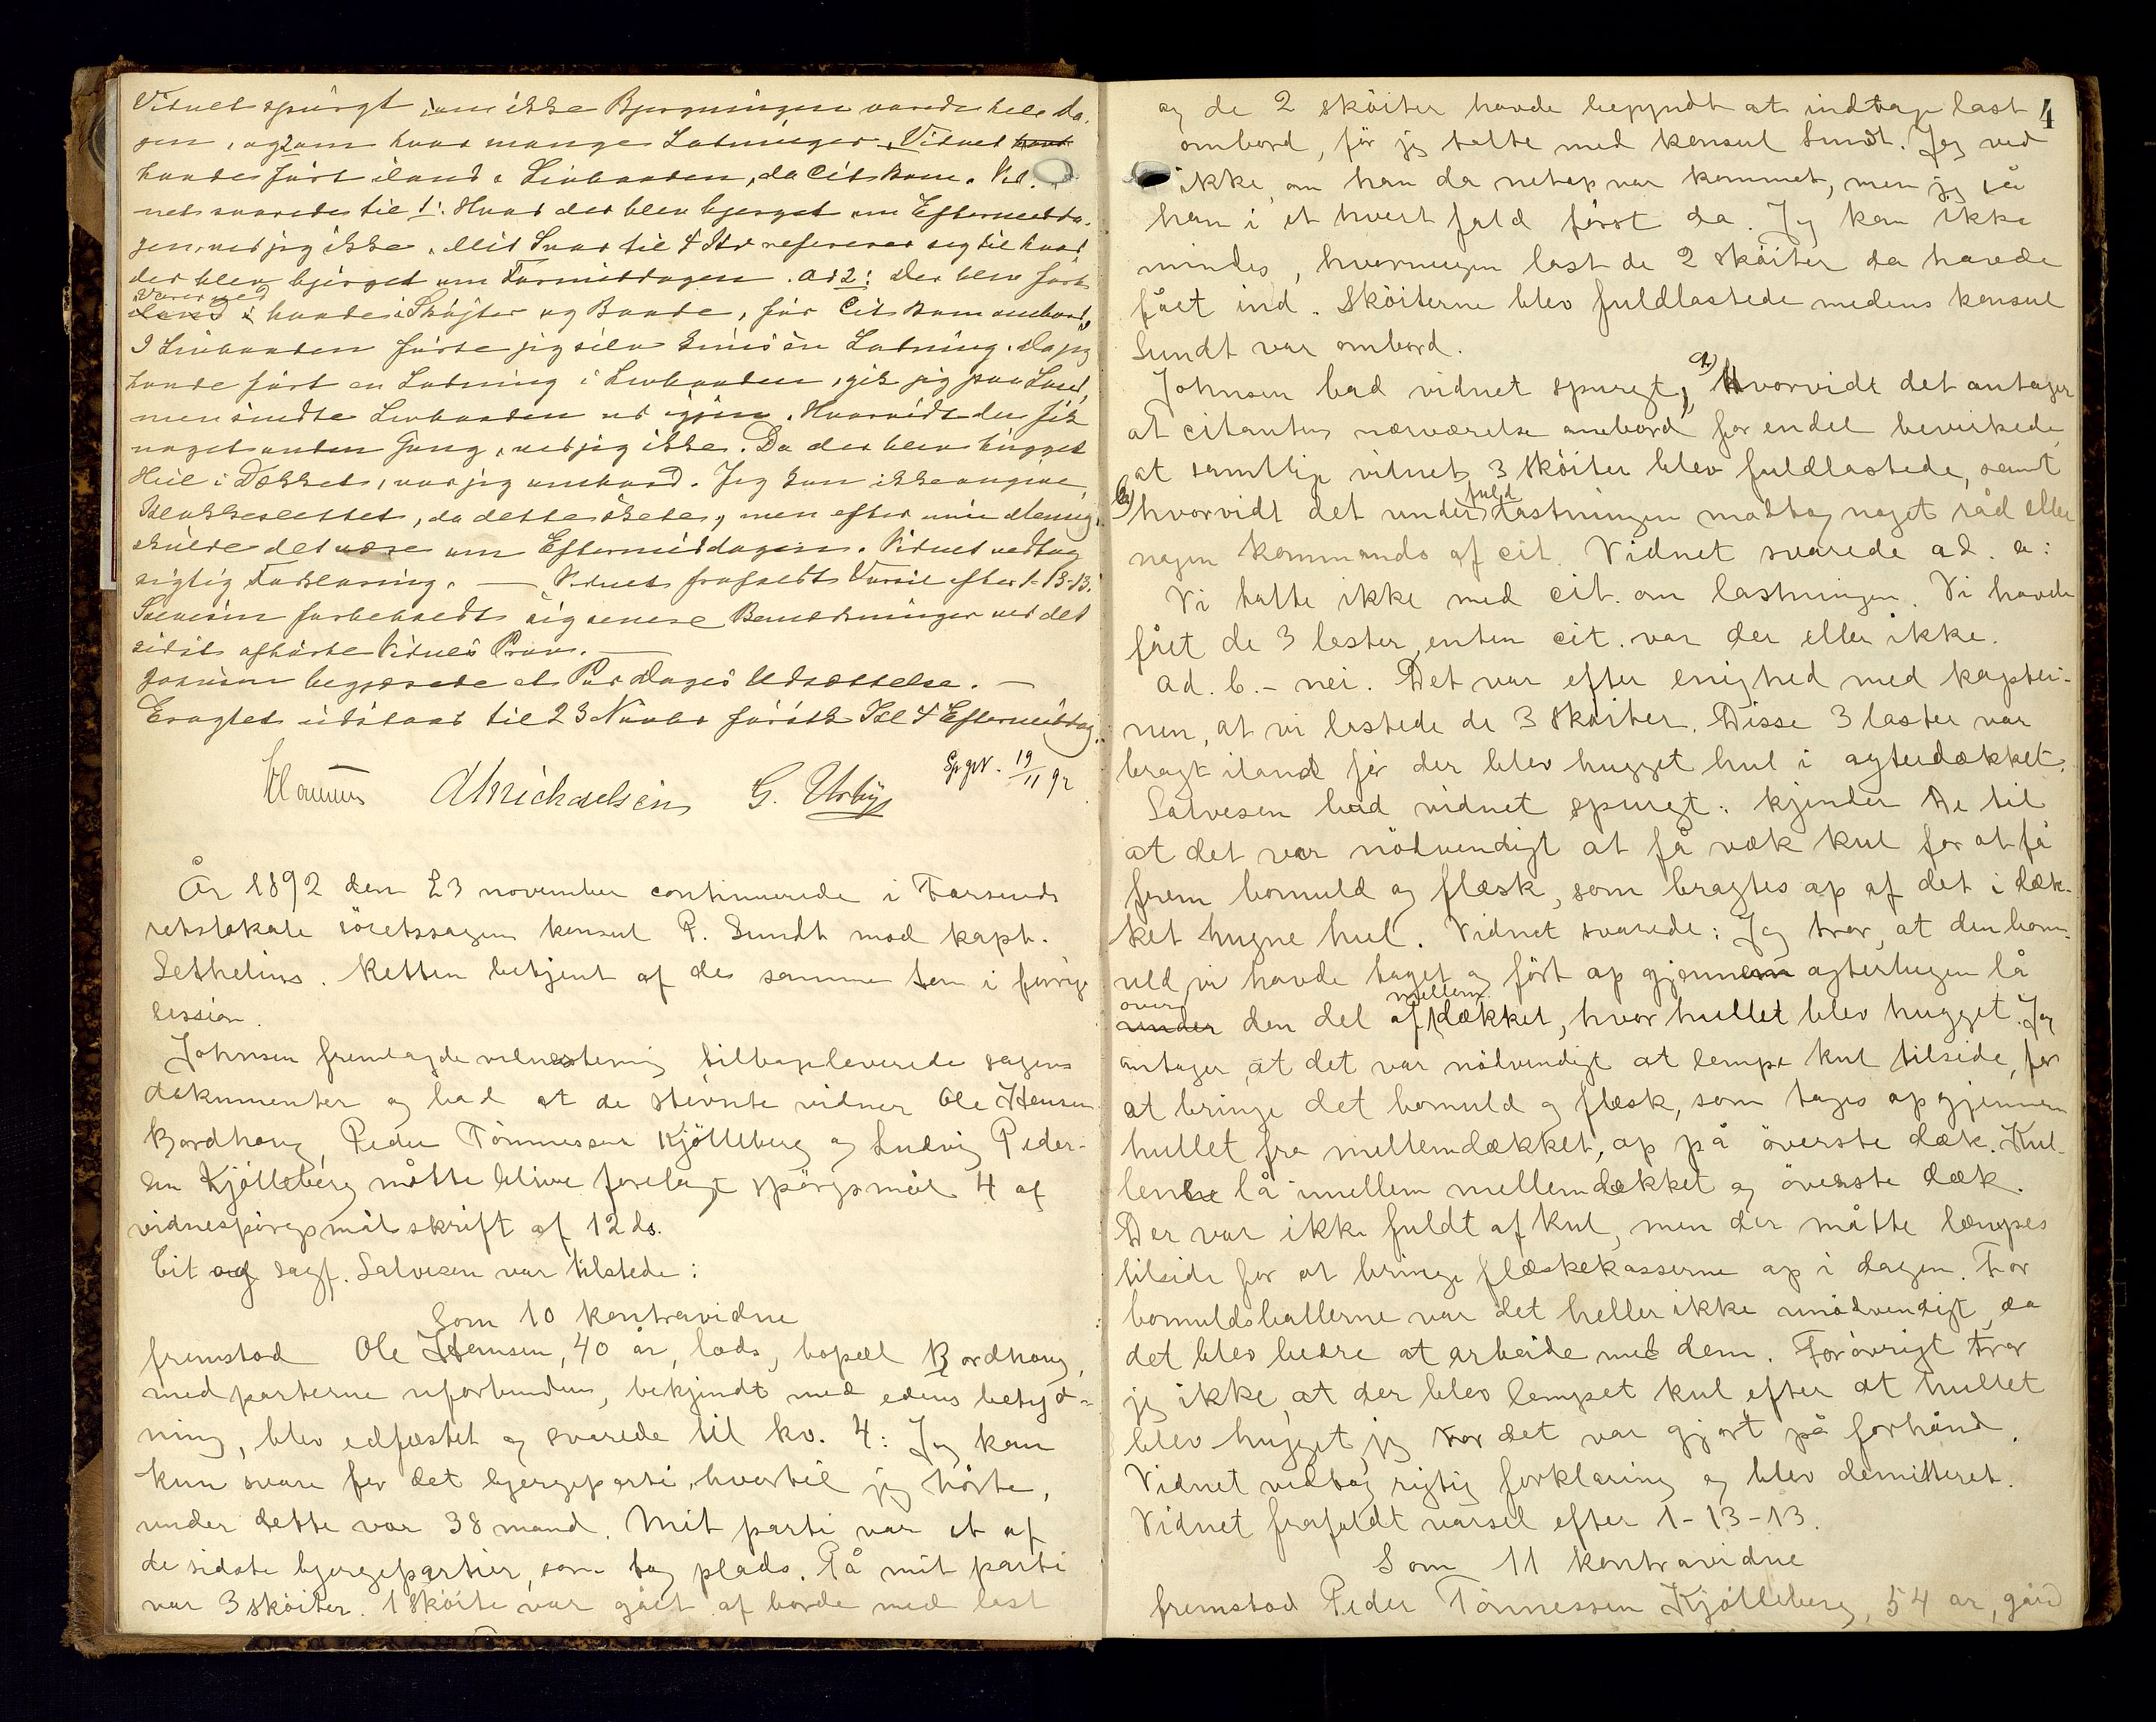 Vidnet spurgt 1 om ikke Bjergningen varede hele Da-
gen, og 2 om hvor mange Ladninger Vidnet havt
havde ført iland i Livbaaden, da Cit kom. Vid-
net svarede til 1: Hvad der blev bjerget om Eftermidda-
gen, ved jeg ikke. Mit Svar til 4 Skr refererer sig til hvad
der blev bjerget om Formiddagen. Ad 2: Der blev ført
Varer ned
iland i baade i Skøjter og Baade, før Cit kom ombord,
I Livbaaden førte jeg selv kun én Ladning. Da jeg
havde ført en Ladning i Livbaaden, gik jeg paa Land,
men sendte Livbaaden ud igjen. Hvorvidt den fik
noget anden Gang, ved jeg ikke. Da der blev hugget
Hul i Dækket, var jeg ombord. Jeg kan ikke angive
Klokkeslettet, da dette skete, men efter min Mening
skulde det være om Eftermiddagen. Vidnet vedtog
rigtig Forklaring. — Vidnet frafaldt Varsel efter 1-13-13.
Salvesen forbeholdt sig senere Bemærkninger ved det
sidst afhørte Vidnes Prov. —
Johnsen begjærede et Par Dages Udsættelse. —
Eragtet udstaar til 23 Novbr førstk Kl 4 Eftermiddag.
19/11 92
År 1892 den 23 november continuerede i Farsunds
retslokale söretssagen konsul P. Sundt mod kapt.
Sethelius. Retten betjent af de samme som i forrige
session.
Johnsen fremlagde vidnestevning tilbageleverede sagens
dokumenter og bad at de stevnte vidner Ole Hansen
Bordhoug, Peder Tönnessen Kjölleberg og Ludvig Peder-
sen Kjölleberg måtte blive forelagt spörgsmål 4 af
vidnespörgsmålskrift af 12 ds.
Cit og sagf. Salvesen var tilstede:
Som 10 kontravidne
fremstod Ole Hansen, 40 år, lods, bopæl Bordhoug,
med parterne uforbunden, bekjendt med edens betyd-
ning, blev edfæstet og svarede til kv. 4: Jeg kan
kun svare for det bjergeparti, hvortil jeg hörte,
under dette var 38 mand. Mit parti var et af
de sidste bjergepartier, som tog plads. På mit parti
var 3 sköiter. 1 sköite var gået af borde med last
4
og de 2 sköiter havde begyndt at indtage last
ombord, för jeg talte med konsul Sundt. Jeg ved
ikke, om han da netop var kommet, men jeg så
ham i et hvert fald först da. Jeg kan ikke
mindes, hvormegen last de 2 sköiter da havde
fået ind. Sköiterne blev fuldlastede medens konsul
Sundt var ombord.
Johnsen bad vidnet spurgt, a) hvorvidt det antager
at citantens nærværelse ombord for endel bevirkede
at samtlige vidnets 3 sköiter blev fuldlastede, samt
b) hvorvidt det under fuldlastningen modtog noget råd eller
nogen kommando af cit. Vidnet svarede ad. a:
Vi talte ikke med cit. om lastningen. Vi havde
fået de 3 laster, enten cit. var der eller ikke.
ad. b. - nei. Det var efter enighed med kaptei-
nen, at vi lastede de 3 sköiter. Disse 3 laster var
bragt iland för der blev hugget hul i agterdækket.
Salvesen bad vidnet spurgt: kjender De til
at det var nödvendigt at få væk kul for at få
frem bomuld og flæsk, som bragtes op af det i dæk-
ket hugne hul. Vidnet svarede: Jeg tror, at den bom-
uld vi havde taget og fört op gjennem agterlugen lå
over
under den del af mellemdækket, hvor hullet blev hugget. Jeg
antager, at det var nödvendigt at lempe kul tilside, for
at bringe det bomuld og flæsk, som toges op gjennem
hullet fra mellemdækket, op på överste dæk. Kul-
lene lå imellem mellemdækket og överste dæk.
Der var ikke fuldt af kul, men der måtte læmpes
tilside for at bringe flæskekasserne op i dagen. For
bomuldsballerne var det heller ikke unödvendigt, da
det blev bedre at arbeide med dem. Forövrigt tror
jeg ikke, at der blev lempet kul efter at hullet
blev hugget, jeg tror det var gjort på forhånd.
Vidnet vedtog rigtig forklaring og blev demitteret.
Vidnet frafaldt varsel efter 1-13-13.
Som 11 kontravidne
fremstod Peder Tönnessen Kjölleberg, 54 år, gård